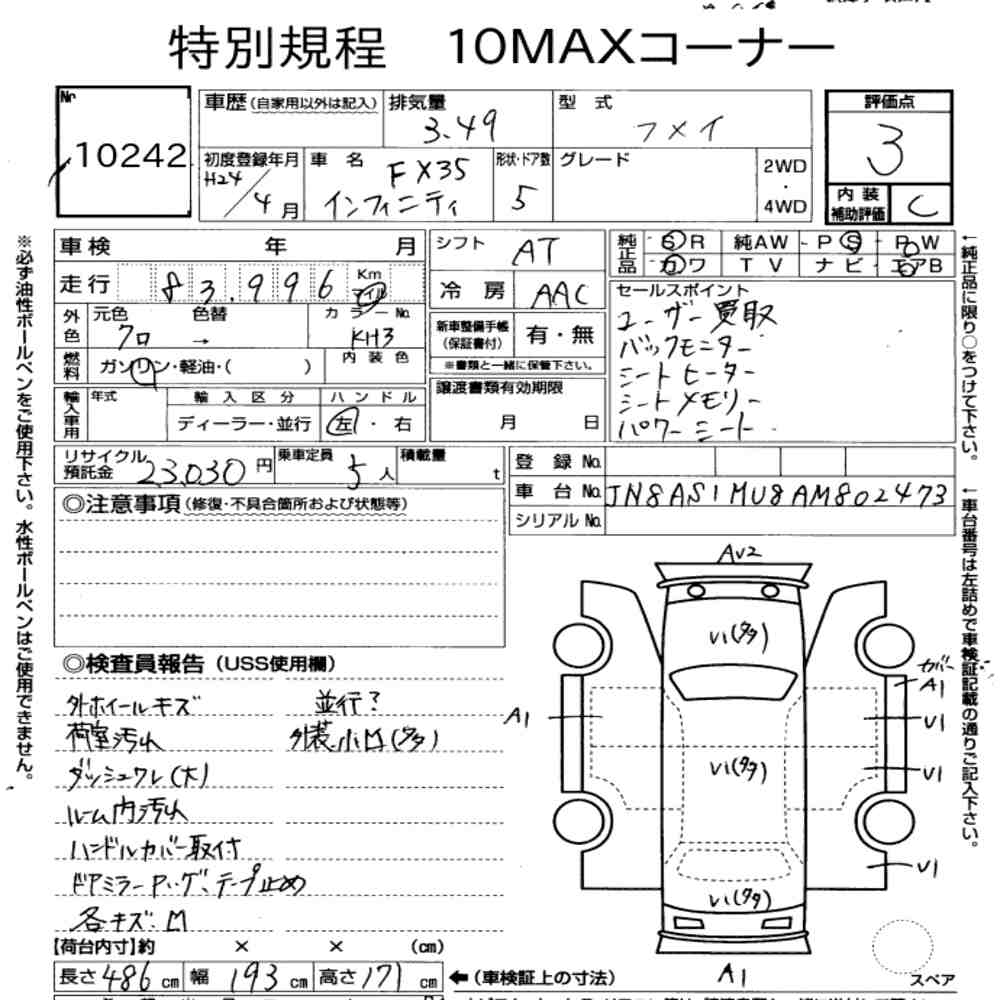 特別規程 10MAXコーナー
№ 10242
車歴(自家用以外は記入) 排気量 3.49 型式 フメイ
評価点 3
初度登録年月 H24/4月 車名 FX35 インフィニティ 形状・ドア数 5 グレード 2WD・4WD
内装補助評価 C
車検 年 月
シフト AT
純正品 SR 純AW PS PW
カワ TV ナビ エアB
走行 83,996 Km マイル
冷房 AAC
外色 元色 クロ 色替 → カラーNo. KH3
新車整備手帳(保証書付) 有・無
※書類と一緒に保管下さい。
燃料 ガソリン・軽油・( ) 内装色
譲渡書類有効期限 月 日
輸入車用 年式 輸入区分 ディーラー・並行 ハンドル 左・右
セールスポイント
ユーザー買取
バックモニター
シートヒーター
シートメモリー
パワーシート
リサイクル預託金 23,030円 乗車定員 5人 積載量 t
登録No.
車台No. JN8AS1MU8AM802473
シリアルNo.
◎注意事項(修復・不具合箇所および状態等)
◎検査員報告(USS使用欄)
外ホイールキズ 並行?
荷室汚れ 外装小凹(タタ)
ダッシュワレ(大)
ルーム内汚れ
ハンドルカバー取付
各キズ・凹
AU2
U1(タタ)
カバー A1
A1
U1
U1(タタ)
U1
U1
U1(タタ)
A1
スペア
【荷台内寸】約 × × (cm)
長さ 486 cm 幅 193 cm 高さ 171 cm ←(車検証上の寸法)
※必ず油性ボールペンをご使用下さい。水性ボールペンはご使用できません。
←純正品に限り○をつけて下さい。
←車台番号は左詰めで車検証記載の通りご記入下さい。